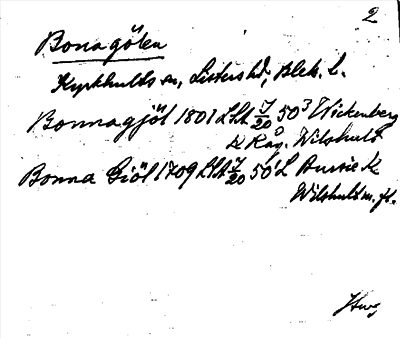 2
Bonagölen
Kyrkhults sn, Listers hd, Blek. l.
Bonnagjöl 1801 LSA 7/20 50³ Wickenberg
& Kag. Wilshult
Bonna Giöl 1709 LSA 7/20 50¹ L K
Wilshult m. fl.